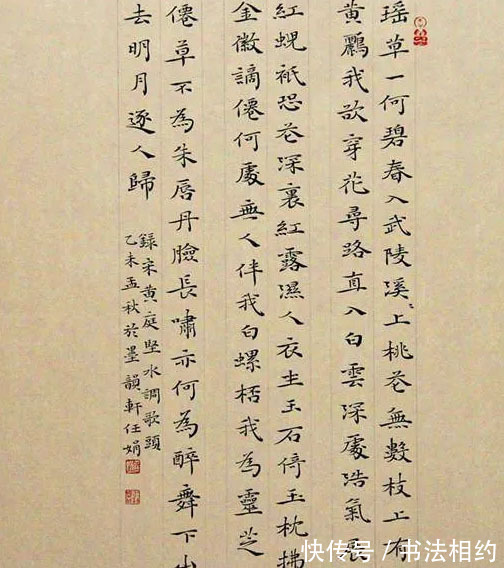 瑤草一何碧春入武陵溪〻上桃花無數枝上有
黃鸝我欲穿花尋路直入白雲深處浩氣展
紅蜺衹恐花深裏紅露濕人衣坐玉石倚玉枕拂
金徽謫僊何處無人伴我白螺桮我為靈芝
僊草不為朱唇丹臉長嘯亦何為醉舞下山
去明月逐人歸
錄宋黃庭堅水調歌頭
乙未孟秋於墨韻軒任娟
快传号 / 书法相约